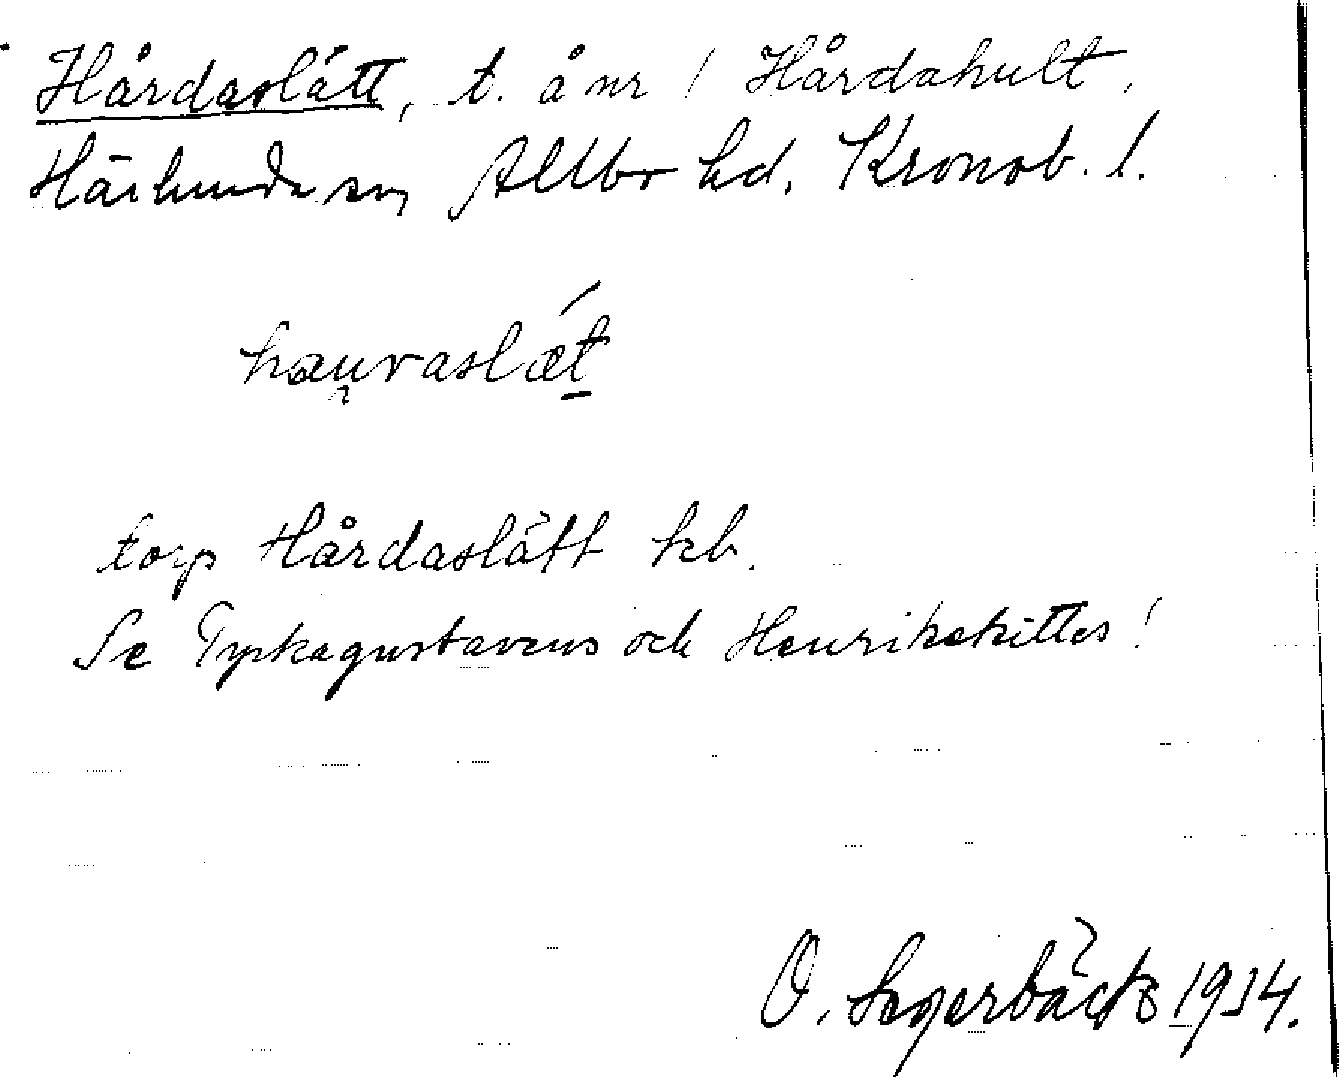 Hårdaslätt, t. å nr 1 Hårdahult,
Härlunda sn, Allbo hd, Kronob. l.
hæu̯rvaslǽt
torp Hårdaslätt kb.
Se Tyskagustavens och Henrikskittes!
O. Segerbäck 1934.